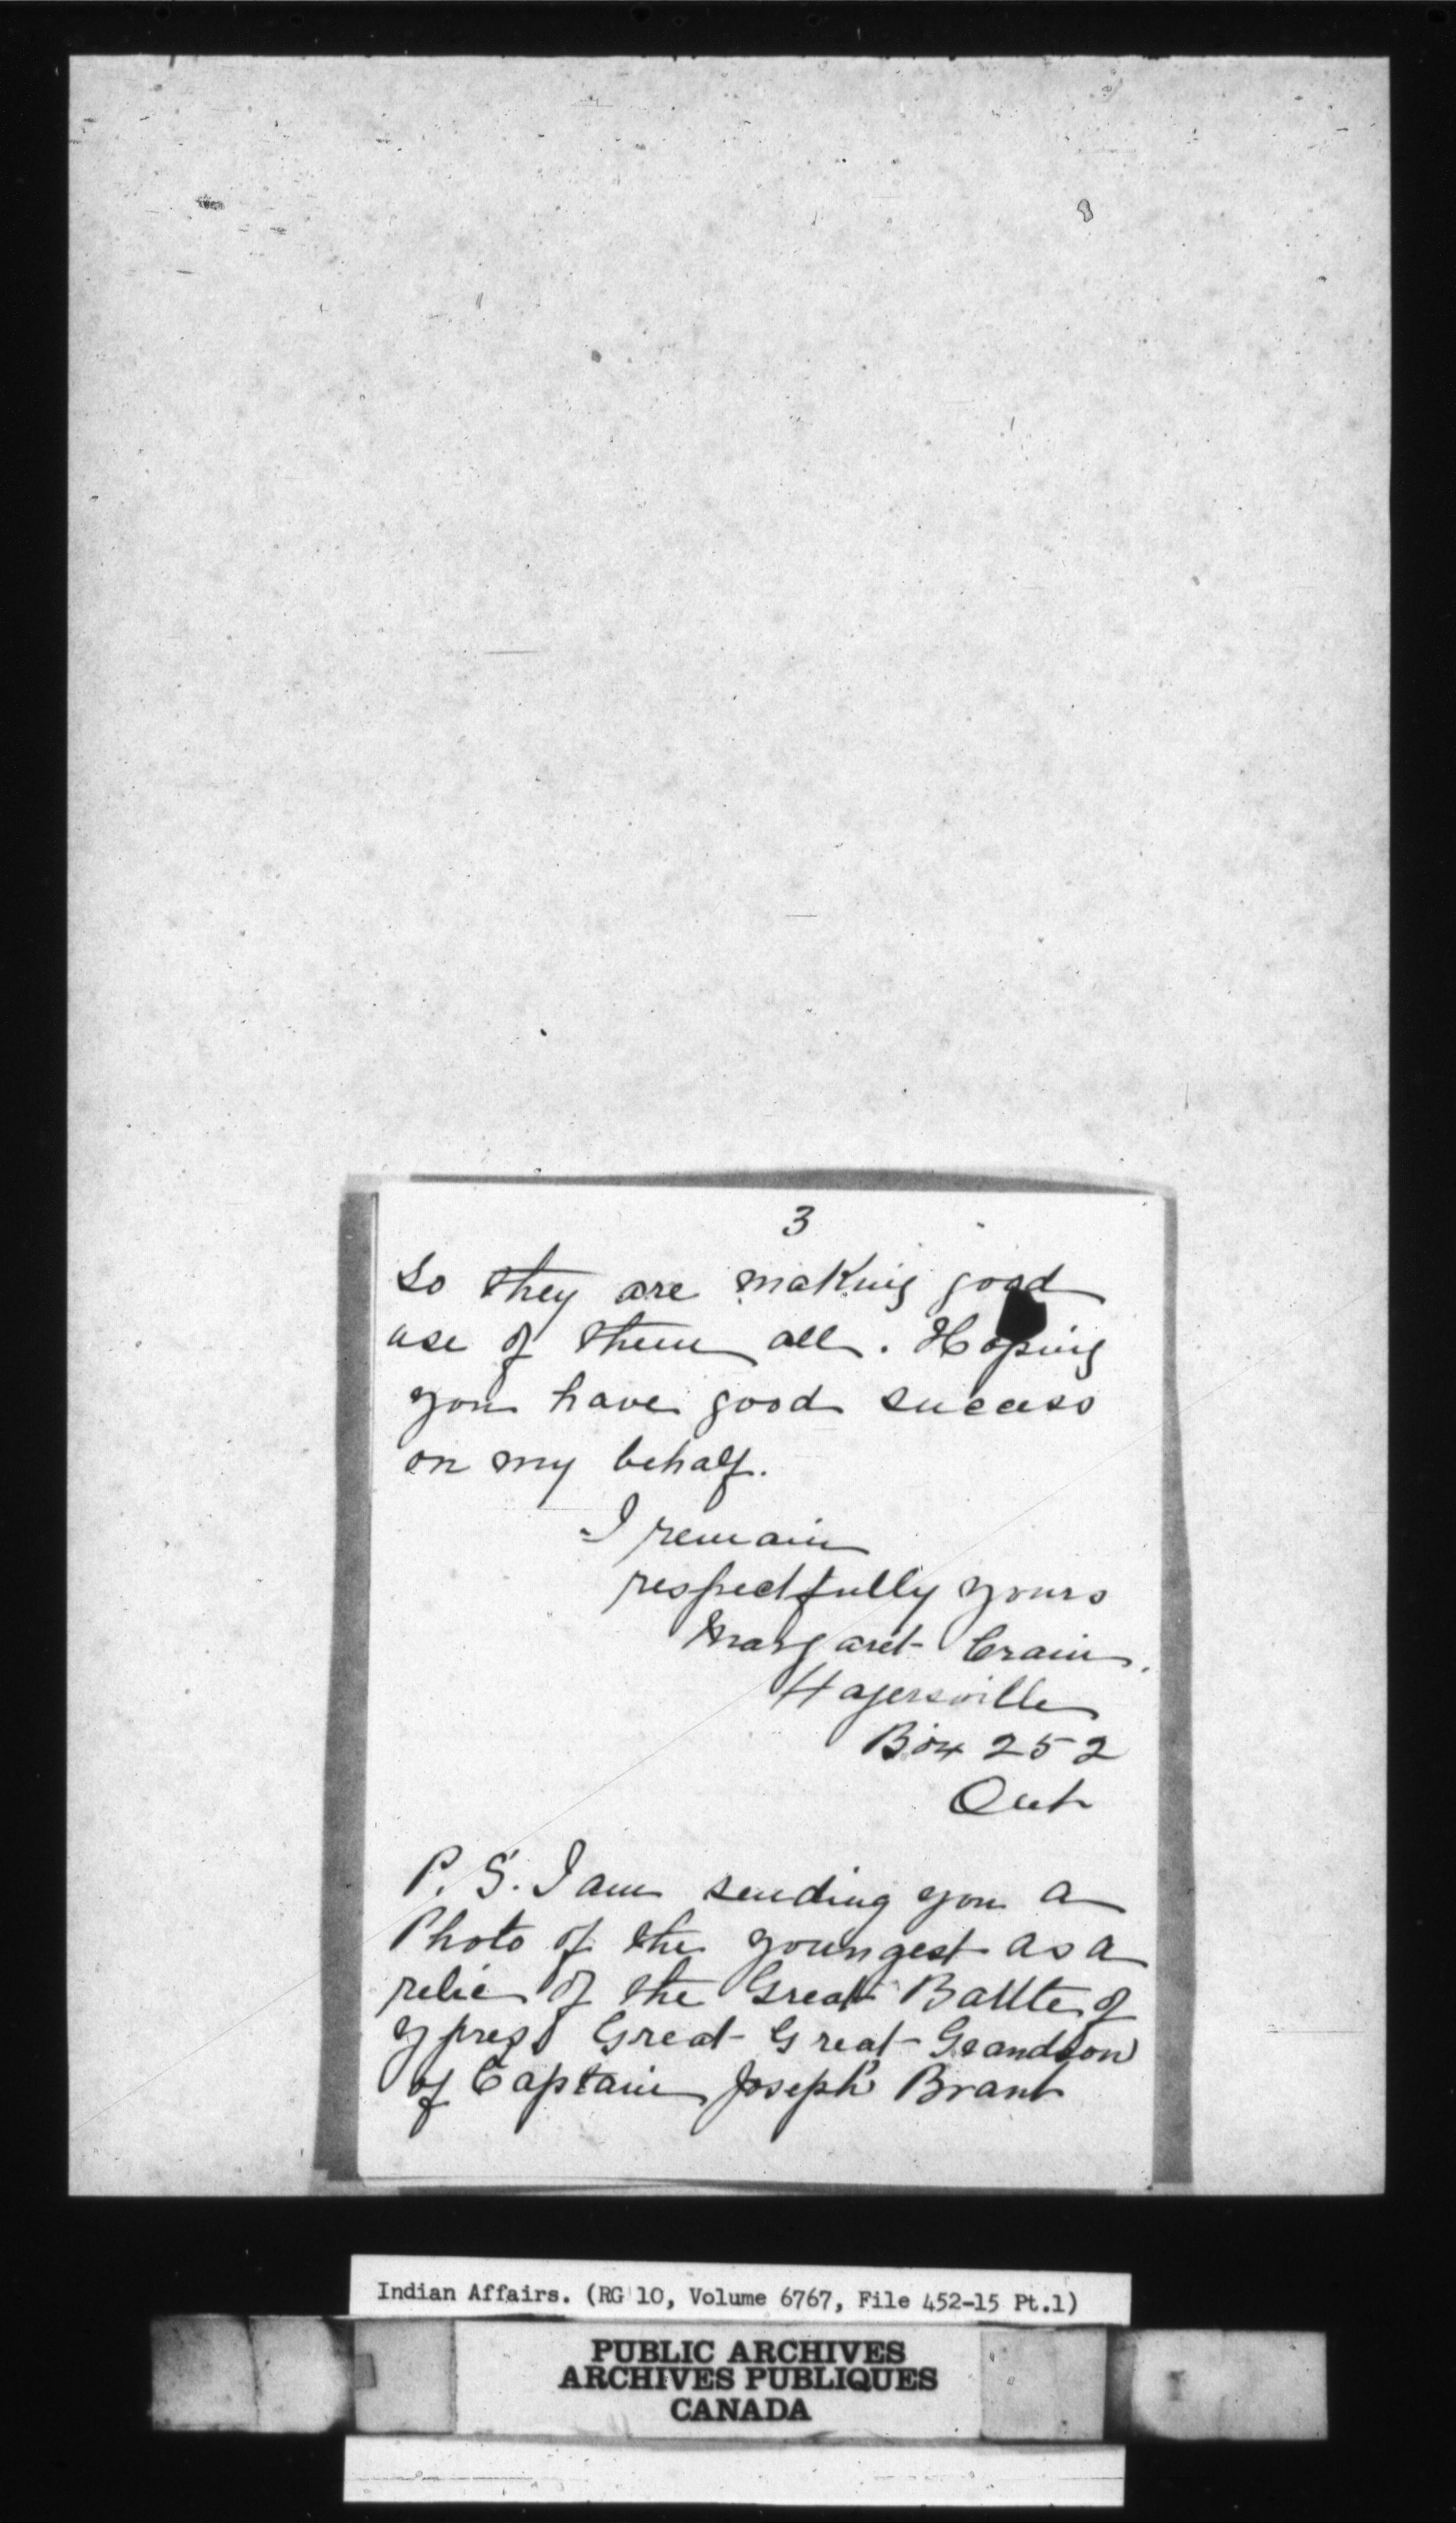 3
So they are making good
use of them all. Hoping
you have good success
on my behalf.
I remain
respectfully yours
Margaret Crain.
Hagersville
Box 252
Ont
P.S. I am sending you a
Photo of the youngest as a
relic of the Great Battle of
ypres Great Great Grandson
of Captain Joseph Brant
Indian Affairs. (RG 10, Volume 6767, File 452-15 Pt.1)
PUBLIC ARCHIVES
ARCHIVES PUBLIQUES
CANADA